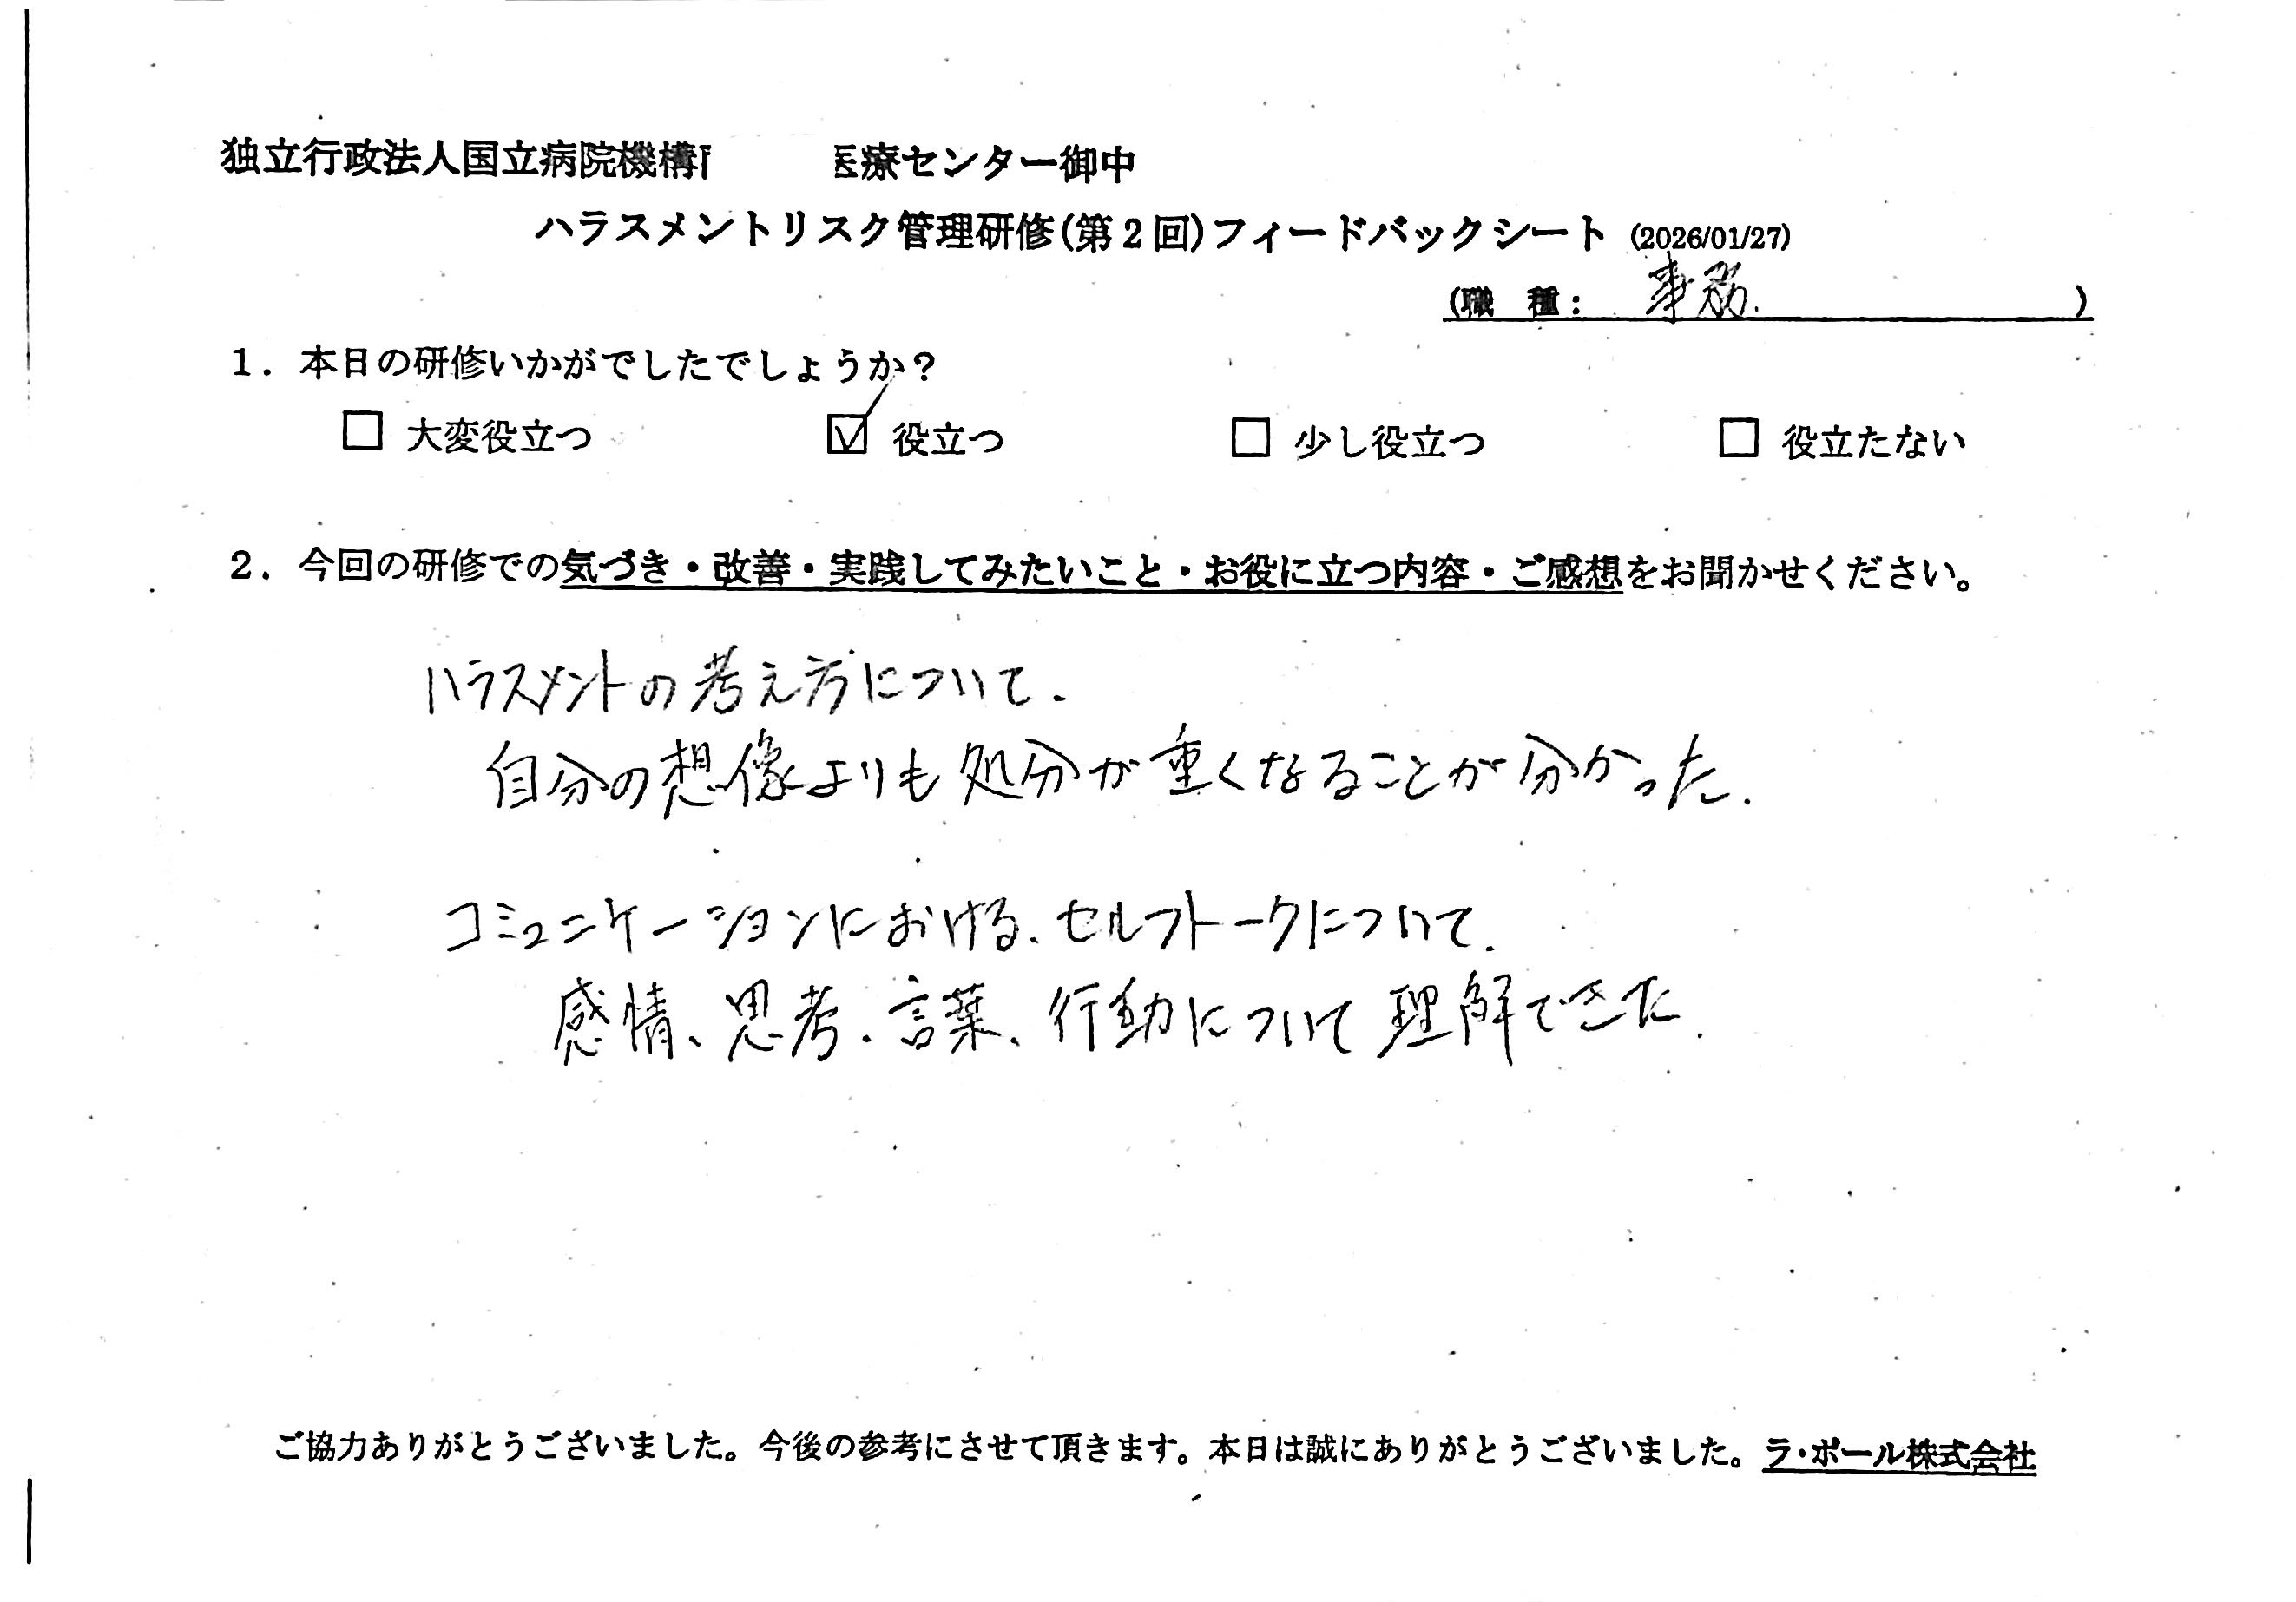 独立行政法人国立病院機構 医療センター御中
ハラスメントリスク管理研修(第2回)フィードバックシート (2026/01/27)
(職 種: 事務. )
1. 本日の研修いかがでしたでしょうか?
□ 大変役立つ ☑ 役立つ □ 少し役立つ □ 役立たない
2. 今回の研修での気づき・改善・実践してみたいこと・お役に立つ内容・ご感想をお聞かせください。
ハラスメントの考え方について.
自分の想像よりも処分が重くなることが分かった.
コミュニケーションにおける、セルフトークについて.
感情、思考、言葉、行動について理解できた.
ご協力ありがとうございました。今後の参考にさせて頂きます。本日は誠にありがとうございました。ラ・ポール株式会社